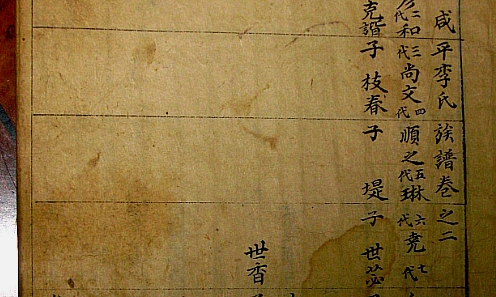 咸平李氏族譜卷之二
代二和代三尚文代四順之代五琳代六堯代七
克諧子枝春子堤子世苾
世香